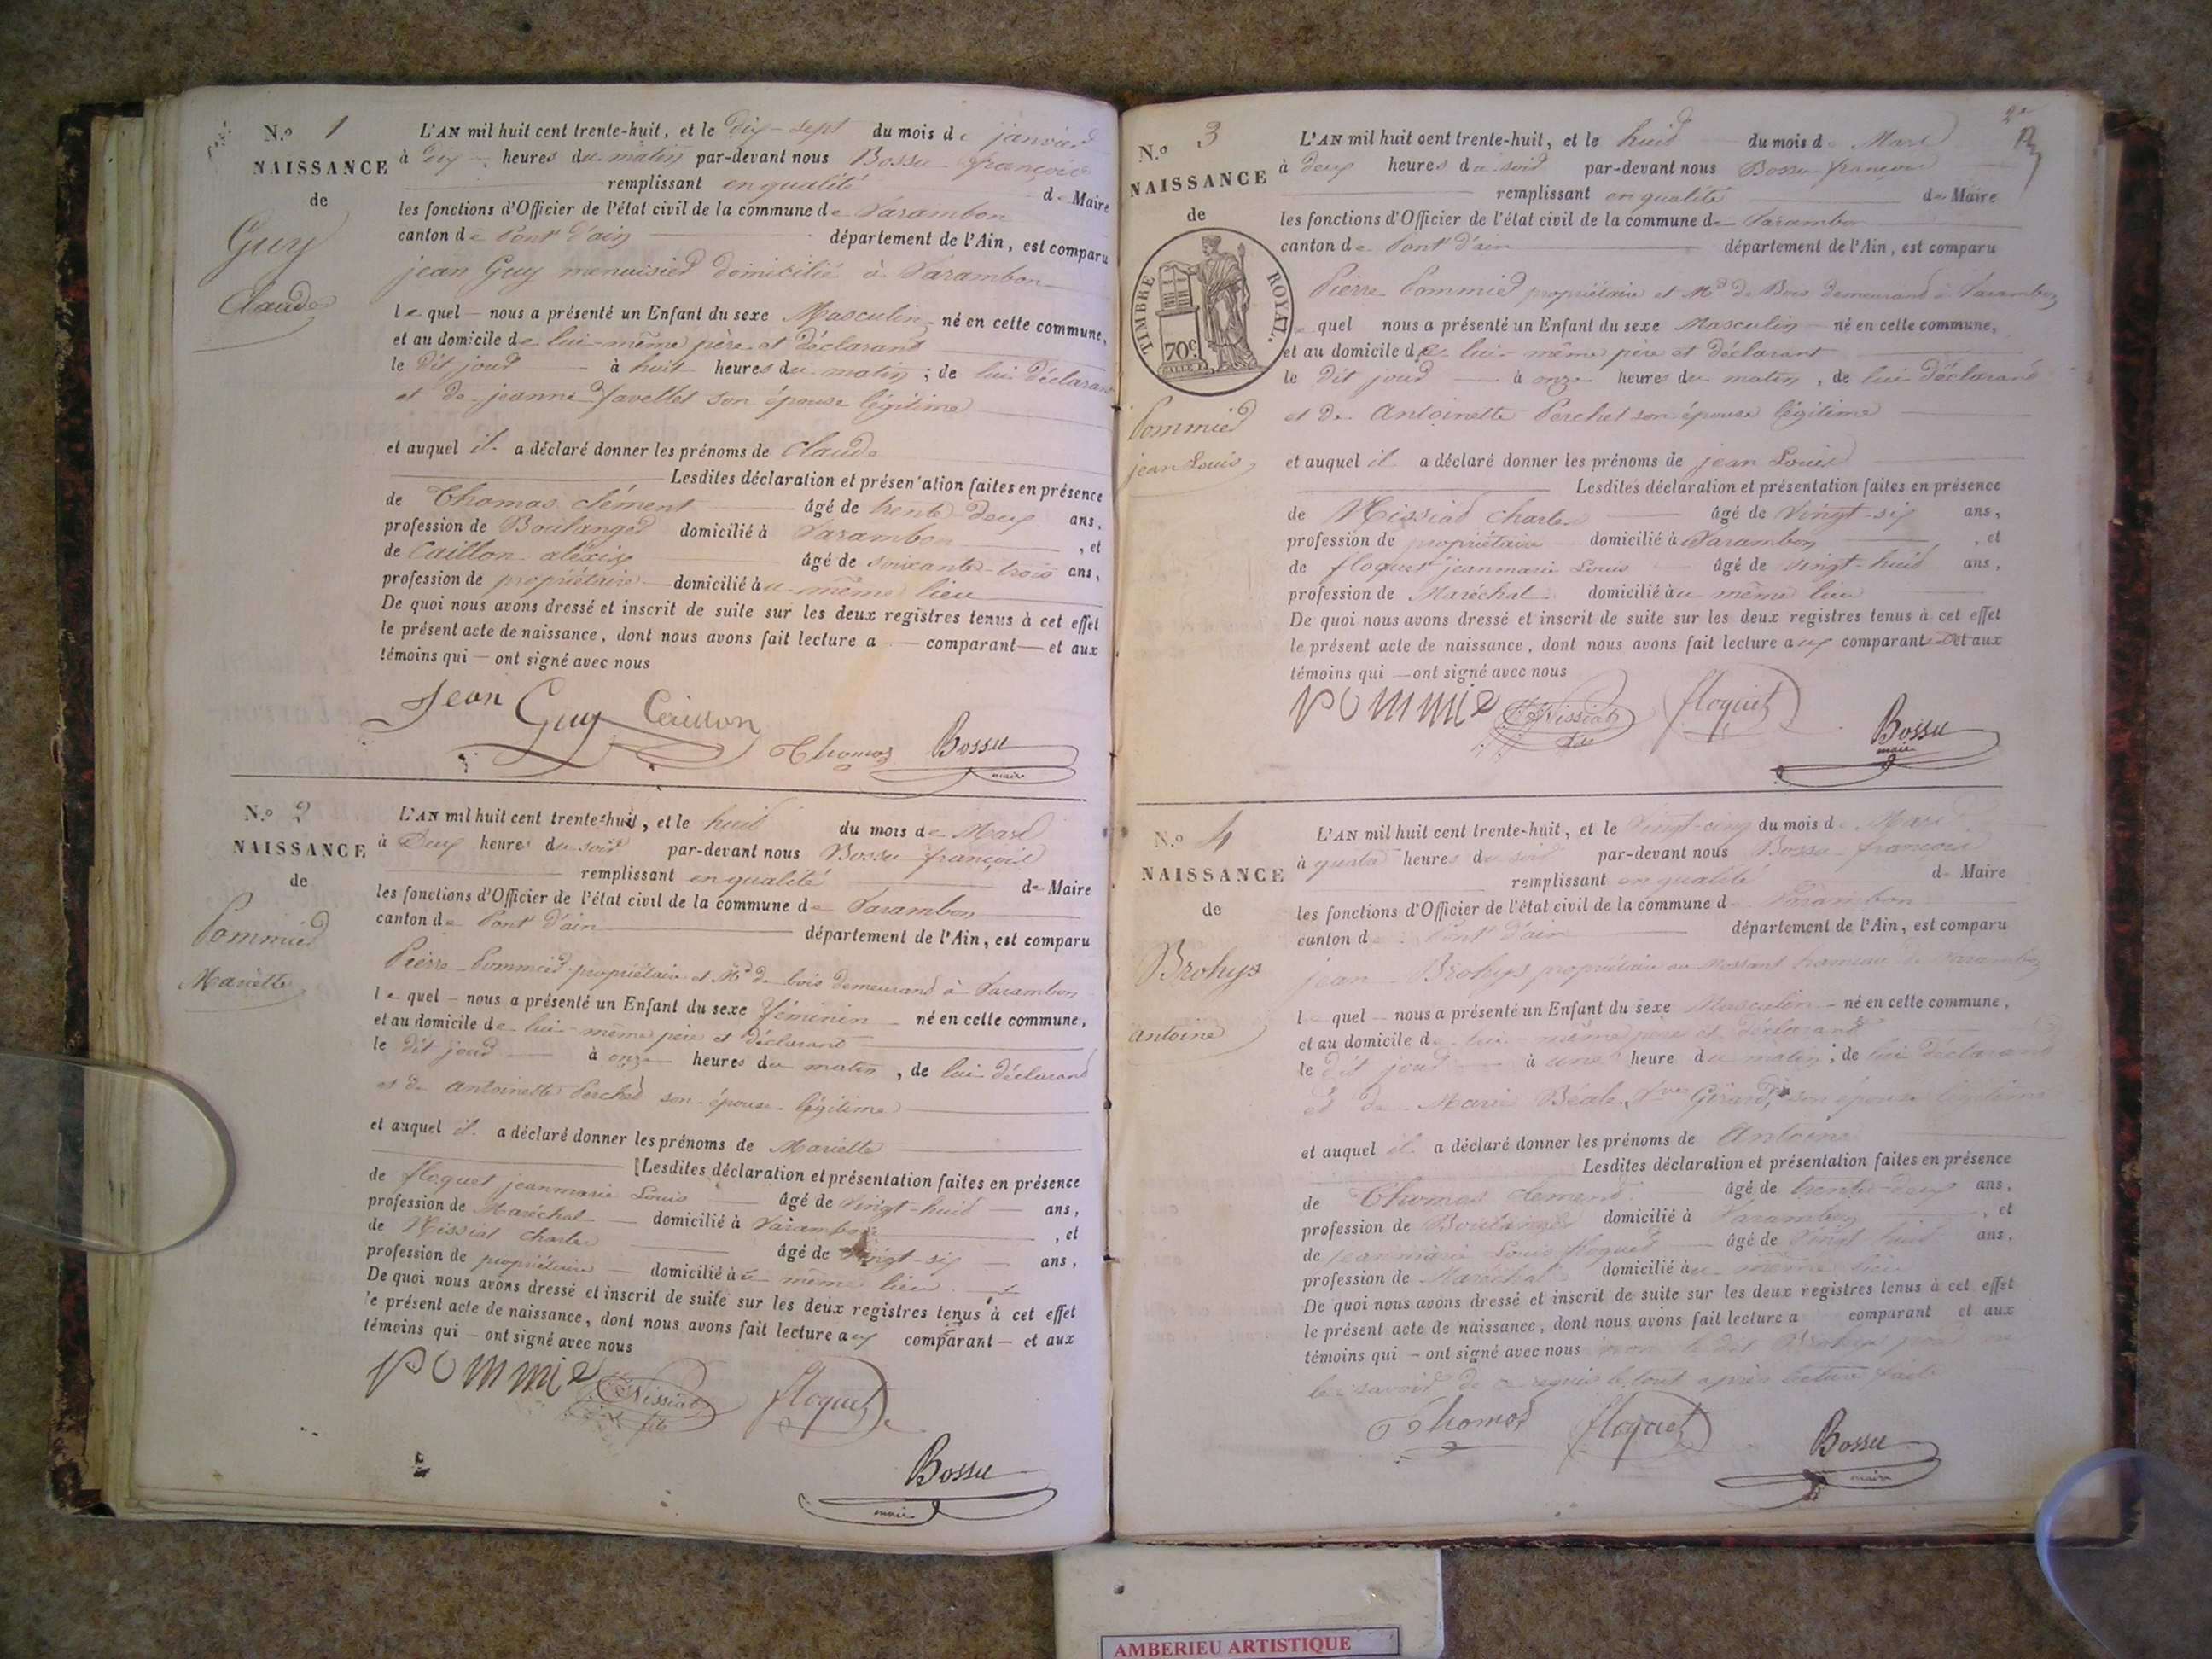 N.o 1
NAISSANCE
de
Guy
Claude
L'AN mil huit cent trente-huit, et le dix-sept du mois de janvier
à dix heures du matin par-devant nous Bossu françois
remplissant en qualité de Maire
les fonctions d'Officier de l'état civil de la commune de Varambon
canton de Pont d'ain département de l'Ain, est comparu
jean Guy menuisier domicilié à Varambon
lequel nous a présenté un Enfant du sexe Masculin né en cette commune,
et au domicile de lui-même père et déclarant
le dit jour à huit heures du matin ; de lui déclarant
et de jeanne son épouse légitime
et auquel il a déclaré donner les prénoms de Claude
Lesdites déclaration et présentation faites en présence
de Thomas clément âgé de trente deux ans,
profession de Boulanger domicilié à Varambon , et
de Caillon aléxis âgé de soixante-trois ans,
profession de propriétaire domicilié au même lieu
De quoi nous avons dressé et inscrit de suite sur les deux registres tenus à cet effet
le présent acte de naissance, dont nous avons fait lecture a comparant et aux
témoins qui ont signé avec nous
Jean Guy Caillon
Thomas Bossu
maire
N.o 2
NAISSANCE
de
Pommier
Mariette
L'AN mil huit cent trente-huit, et le huit du mois de Mars
à Deux heures du soir par-devant nous Bossu françois
remplissant en qualité de Maire
les fonctions d'Officier de l'état civil de la commune de Varambon
canton de Pont d'ain département de l'Ain, est comparu
Pierre Pommier propriétaire et Md de bois demeurant à Varambon
lequel nous a présenté un Enfant du sexe féminin né en cette commune,
et au domicile de lui-même père et déclarant
le dit jour à onze heures du matin , de lui déclarant
et de antoinette Perchet son épouse légitime
et auquel il a déclaré donner les prénoms de Mariette
Lesdites déclaration et présentation faites en présence
de floquet jeanmarie Louis âgé de vingt-huit ans,
profession de Maréchal domicilié à Varambon , et
de Nissiat charles âgé de vingt-six ans,
profession de propriétaire domicilié à même lieu
De quoi nous avons dressé et inscrit de suite sur les deux registres tenus à cet effet
le présent acte de naissance, dont nous avons fait lecture aux comparant et aux
témoins qui ont signé avec nous
pommie Nissiat fils floquet
Bossu
maire
2e
N.o 3
NAISSANCE
de
TIMBRE ROYAL.
70c.
Pommier
jean Louis
L'AN mil huit cent trente-huit, et le huit du mois de Mars
à deux heures du soir par-devant nous Bossu françois
remplissant en qualité de Maire
les fonctions d'Officier de l'état civil de la commune de Varambon
canton de Pont d'ain département de l'Ain, est comparu
Pierre Pommier propriétaire et Md de Bois demeurant à Varambon
lequel nous a présenté un Enfant du sexe Masculin né en cette commune,
et au domicile de lui-même père et déclarant
le dit jour à onze heures du matin , de lui déclarant
et de Antoinette Perchet son épouse légitime
et auquel il a déclaré donner les prénoms de jean Louis
Lesdites déclaration et présentation faites en présence
de Nissiat charles âgé de vingt-six ans,
profession de propriétaire domicilié à Varambon , et
de floquet jeanmarie Louis âgé de vingt-huit ans,
profession de Maréchal domicilié au même lieu
De quoi nous avons dressé et inscrit de suite sur les deux registres tenus à cet effet
le présent acte de naissance, dont nous avons fait lecture aux comparant et aux
témoins qui ont signé avec nous
pommie Nissiat floquet
Bossu
maire
N.o 4
NAISSANCE
de
Brohys
antoine
L'AN mil huit cent trente-huit, et le Vingt-cinq du mois de Mars
à quatre heures du soir par-devant nous Bossu françois
remplissant en qualité de Maire
les fonctions d'Officier de l'état civil de la commune de Varambon
canton de Pont d'ain département de l'Ain, est comparu
jean Brohys propriétaire au Mossant hameau de Varambon
lequel nous a présenté un Enfant du sexe Masculin né en cette commune,
et au domicile de lui même père et déclarant
le dit jour à une heure du matin ; de lui déclarant
et de Marie Béate son épouse légitime
et auquel il a déclaré donner les prénoms de Antoine
Lesdites déclaration et présentation faites en présence
de Thomas clement âgé de trente-deux ans,
profession de Boulanger domicilié à Varambon , et
de jeanmarie Louis floquet âgé de vingt huit ans,
profession de Maréchal domicilié au même lieu
De quoi nous avons dressé et inscrit de suite sur les deux registres tenus à cet effet
le présent acte de naissance, dont nous avons fait lecture a comparant et aux
témoins qui ont signé avec nous non le dit Brohys pour ne
le savoir de ce requis le tout après lecture faite
Thomas floquet Bossu
maire
AMBERIEU ARTISTIQUE